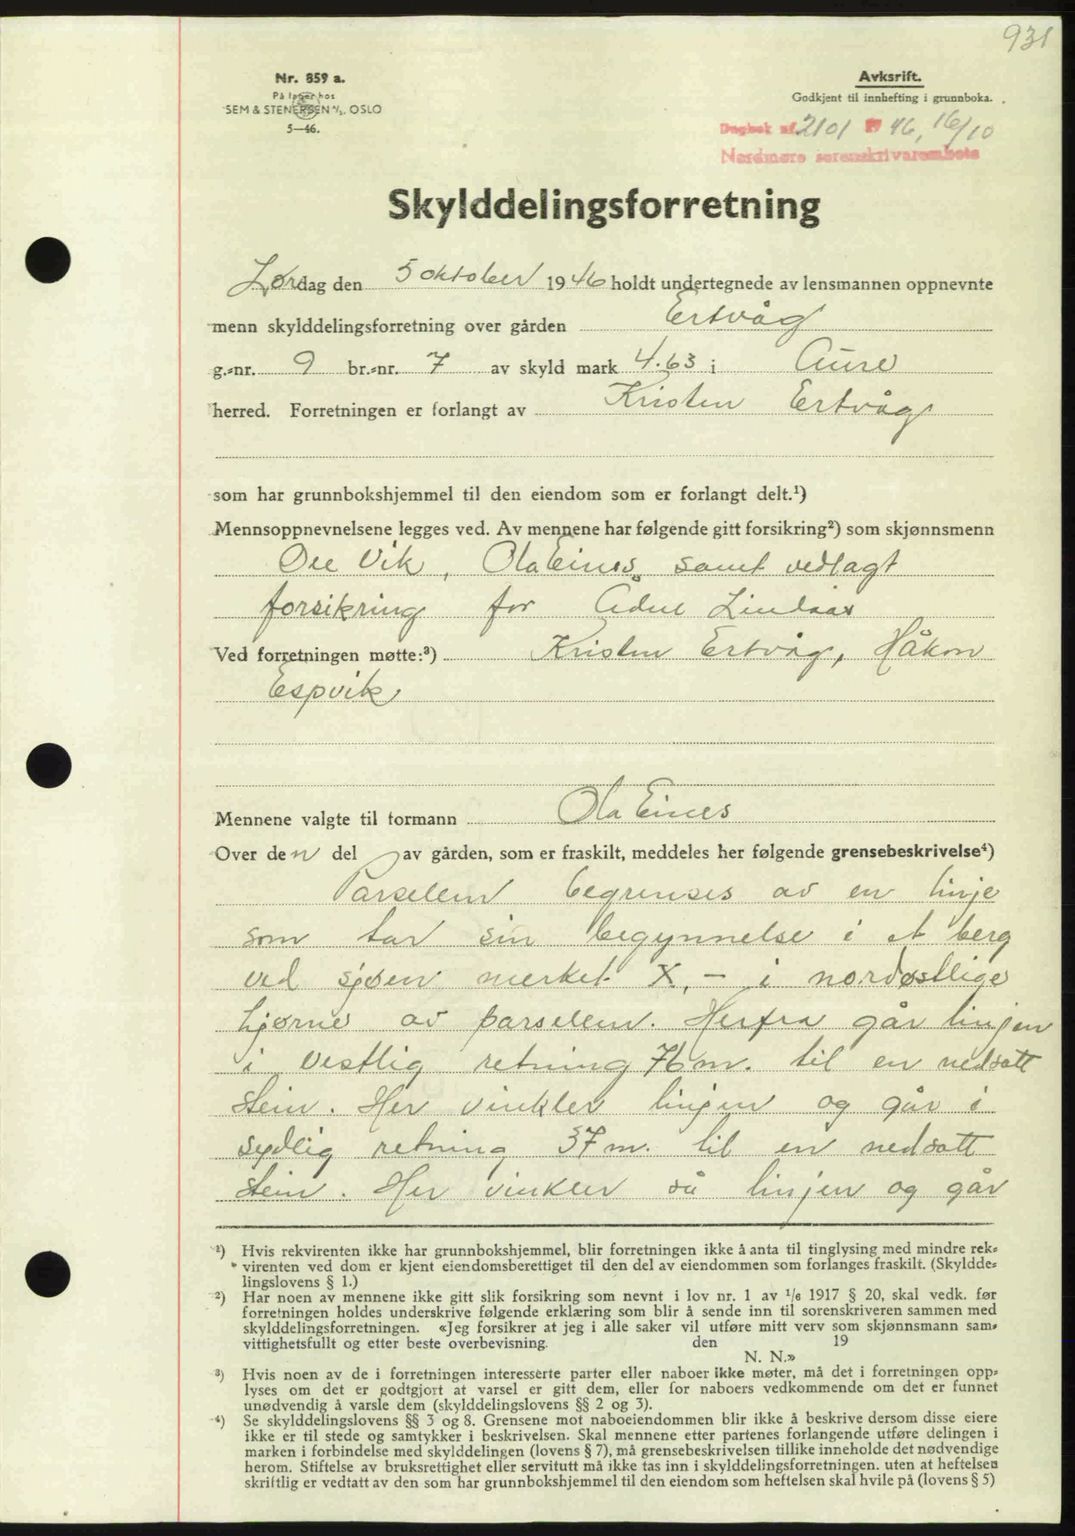 931
Nr. 859 a.
På lager hos
SEM & STENERSEN A/S. OSLO
5—46.
Avksrift.
Godkjent til innhefting i grunnboka.
Dagbok nr. 2101 19 46, 16/10
Nordmøre sorenskrivarembete
Skylddelingsforretning
Lørdag den 5 oktober 1946 holdt undertegnede av lensmannen oppnevnte
menn skylddelingsforretning over gården Ertvåg
g.-nr. 9 br.-nr. 7 av skyld mark 4.63 i Aure
herred. Forretningen er forlangt av Kristen Ertvåg
som har grunnbokshjemmel til den eiendom som er forlangt delt.¹)
Mennsoppnevnelsene legges ved. Av mennene har følgende gitt forsikring²) som skjønnsmenn
Ole Vik, Ola Eines, samt vedlagt
forsikring for Adne Lindaas
Ved forretningen møtte:³) Kristen Ertvåg, Håkon
Espvik
Mennene valgte til formann Ola Eines
Over den del av gården, som er fraskilt, meddeles her følgende grensebeskrivelse⁴)
Parsellen begrenses av en linje
som tar sin begynnelse i et berg
ved sjøen merket X, – i nordøstlige
hjørne av parsellen. Herfra går linjen
i vestlig retning 76 m. til en nedsatt
stein. Her vinkler linjen og går i
sydlig retning 37 m. til en nedsatt
stein. Her vinkler så linjen og går
¹) Hvis rekvirenten ikke har grunnbokshjemmel, blir forretningen ikke å anta til tinglysing med mindre rek-
virenten ved dom er kjent eiendomsberettiget til den del av eiendommen som forlanges fraskilt. (Skyldde-
lingslovens § 1.)
²) Har noen av mennene ikke gitt slik forsikring som nevnt i lov nr. 1 av 1/6 1917 § 20, skal vedk. før
forretningen holdes underskrive følgende erklæring som blir å sende inn til sorenskriveren sammen med
skylddelingsforretningen. «Jeg forsikrer at jeg i alle saker vil utføre mitt verv som skjønnsmann sam-
vittighetsfullt og etter beste overbevisning. den 19
N. N.»
³) Hvis noen av de i forretningen interesserte parter eller naboer ikke møter, må det i forretningen opp-
lyses om det er godtgjort at varsel er gitt dem, eller for naboers vedkommende om det er funnet
unødvendig å varsle dem (skylddelingslovens §§ 2 og 3).
⁴) Se skylddelingslovens §§ 3 og 8. Grensene mot naboeiendommen blir ikke å beskrive dersom disse eiere
ikke er til stede og samtykker i beskrivelsen. Skal mennene etter partenes forlangende utføre delingen i
marken i forbindelse med skylddelingen (lovens § 7), må grensebeskrivelsen tillike inneholde det nødvendige
herom. Stiftelse av bruksrettighet eller servitutt må ikke tas inn i skylddelingsforretningen. uten at heftelsen
skriftlig er vedtatt av den som har grunnbokshjemmel til den eiendom som heftelsen skal hvile på (lovens § 5)